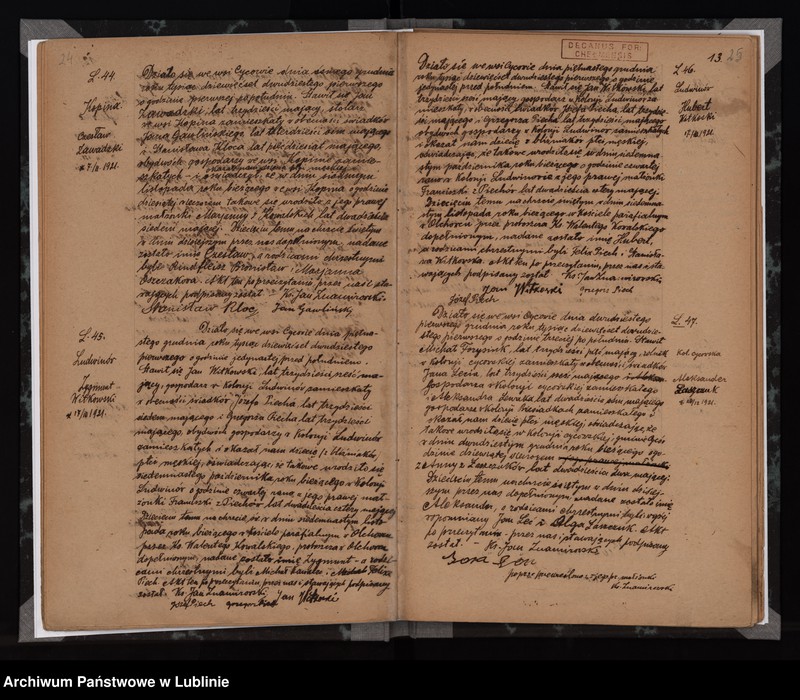 24
L. 44
Kopina
Czesław
Zawadzki
Działo się we wsi Cycowie dnia ósmego grudnia
roku tysiąc dziewięćset dwudziestego pierwszego
o godzinie pierwszej popołudniu. Stawił się Jan
Zawadzki, lat trzydzieści mający, stolarz
we wsi Kopina zamieszkały w obecności świadków
Józefa Gawlińskiego lat czterdzieści mającego
i Stanisława Kloca lat pięćdziesiąt mającego,
obydwóch gospodarzy we wsi Kopinie zamie-
szkałych
listopada roku bieżącego we wsi Kopina o godzinie
dziesiątej wieczorem takowe się urodziło z jego prawej
małżonki Marjanny z Kowalskich lat dwadzieścia
siedem mającej. Dziecięciu temu na chrzcie świętym
w dniu dzisiejszym przez nas dopełnionym, nadane
zostało imię Czesław, a rodzicami chrzestnymi
byli Bronisław i Marjanna
Akt ten po przeczytaniu przez nas i sta-
wających podpisany został - Ks. Jan Znamirowski
Stanisław Kloc Jan Gawliński
L. 45.
Ludwinów
Zygmunt
Witkowski
Działo się we wsi Cycowie dnia piętna-
stego grudnia, roku tysiąc dziewięćset dwudziestego
pierwszego o godzinie jedynastej przed południem.
Stawił się Jan Witkowski, lat trzydzieści sześć, ma-
jący, gospodarz w Kolonji Ludwinów zamieszkały
w obecności świadków, Józefa Piecha, lat trzydzieści
siedem mającego i Grzegorza Piecha, lat trzydzieści
mającego, obydwóch gospodarzy z Kolonji Ludwinów
zamieszkałych i okazał nam dziecię /: bliźniaka
płci męskiej, oświadczając, że takowe urodziło się
siedemnastego października roku bieżącego w Kolonji
Ludwinów o godzinie czwartej rano z jego prawej mał-
żonki Franciszki z Piechów, lat dwadzieścia cztery mającej
Dziecięciu temu na chrzcie św. w dniu siedemnastym listo-
pada roku bieżącego w Kościele parafialnym w Olchowcu
przez Ks. Walentego Kowalskiego, proboszcza w Olchowcu
dopełnionym, nadane zostało imię Zygmunt - a rodzi-
cami chrzestnymi byli Michał
Piech Akt ten po przeczytaniu przez nas i stawających podpisany
został. Ks. Jan Znamirowski Jan Witkowski
Józef Piech Grzegorz Piech
DECANUS FOR:
CHEŁMENSIS
13. 25
L. 46.
Ludwinów
Hubert
Witkowski
Działo się we wsi Cycowie dnia piętnastego grudnia
roku tysiąc dziewięćset dwudziestego pierwszego o godzinie
jedynastej przed południem. Stawił się Jan Witkowski, lat
trzydzieści sześć mający, gospodarz w Kolonji Ludwinów za-
mieszkały, w obecności świadków, Józefa Piecha, lat trzydzieści
siedem mającego i Grzegorza Piecha, lat trzydzieści, mającego
obydwóch gospodarzy w Kolonji Ludwinów zamieszkałych
i okazał nam dziecię z bliźniaków płci męskiej,
oświadczając, że takowe urodziło się w dniu siedemna-
stym października roku bieżącego o godzinie czwartej
rano w Kolonji Ludwinów z jego prawej małżonki
Franciszki z Piechów lat dwadzieścia cztery mającej.
Dziecięciu temu na chrzcie świętym w dniu siedemna-
stym listopada roku bieżącego w Kościele parafialnym
w Olchowcu przez proboszcza Ks. Walentego Kowalskiego
dopełnionym, nadane zostało imię Hubert,
a rodzicami chrzestnymi byli Piech i Stanisła-
wa Witkowska. Akt ten po przeczytaniu, przez nas i sta-
wających podpisany został. Ks. Jan Znamirowski.
Jan Witkowski Grzegorz Piech
Józef Piech
L. 47.
Kol. cycowska
Aleksander
Leszczuk
Działo się we wsi Cycowie dnia dwudziestego
pierwszego grudnia roku tysiąc dziewięćset dwudzie-
stego pierwszego o godzinie trzeciej po południu. Stawił
Michał lat trzydzieści pięć mający, rolnik
w Kolonji cycowskiej zamieszkały w obecności świadków
Jana lat trzydzieści sześć mającego
Gospodarza w Kolonji cycowskiej zamieszkałego
i Aleksandra lat dwadzieścia ośm mającego,
gospodarza w Kolonji zamieszkałego i
okazał nam dziecię płci męskiej oświadczając, że
takowe urodziło się w Kolonji cycowskiej gminie Cyców
w dniu dwudziestym grudnia roku bieżącego o go-
dzinie dziewiątej wieczorem
z Anny z lat dwadzieścia dwa mającej.
Dziecięciu temu na chrzcie świętym w dniu dzisiej-
szym przez nas dopełnionym, nadane zostało imię
Aleksander, a rodzicami chrzestnymi byli wyżej
wspomniany Jan i Olga Akt
po przeczytaniu przez nas i stawających podpisany
został. Ks. Jan Znamirowski
Ks. Znamirowski
Archiwum Państwowe w Lublinie